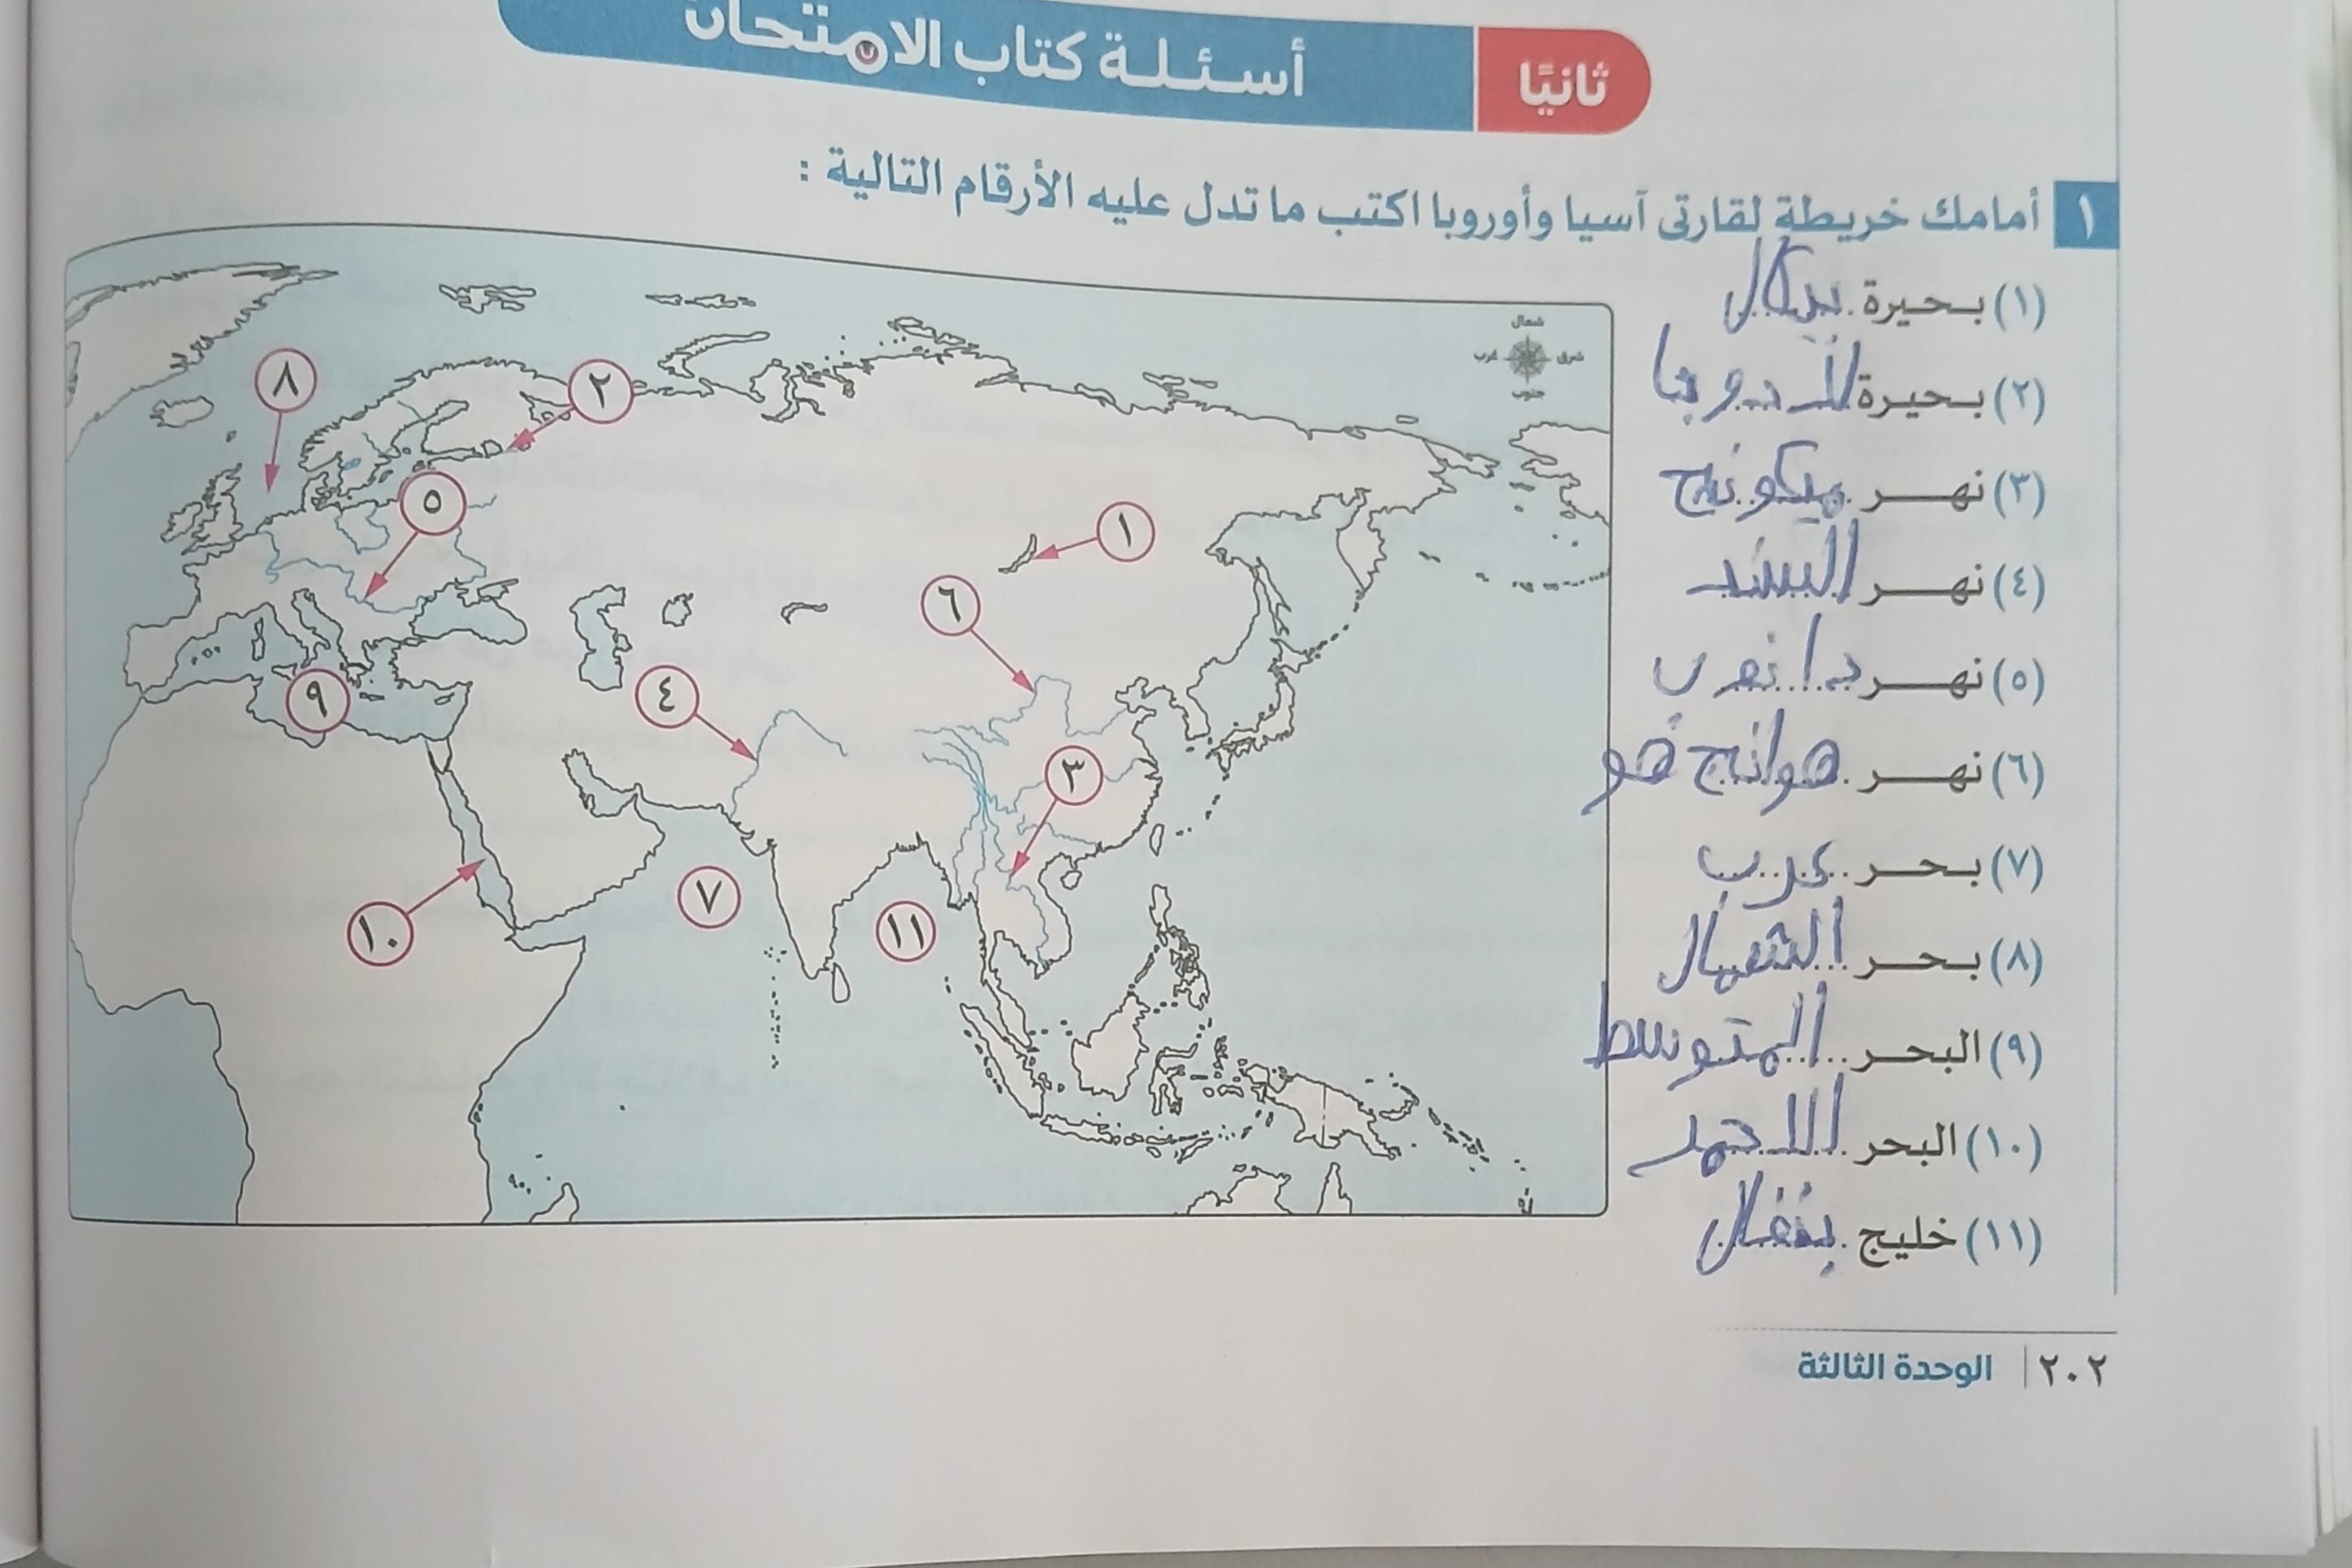 ثانيًا
أسئلة كتاب الامتحان
١ أمامك خريطة لقارتى آسيا وأوروبا اكتب ما تدل عليه الأرقام التالية :
(١) بحيرة بيكال
(٢) بحيرة
(٣) نهر ميكونج
(٤) نهر السند
(٥) نهر دانوب
(٦) نهر هوانج هو
(٧) بحر عرب
(٨) بحر الشمال
(٩) البحر المتوسط
(١٠) البحر الاحمر
(١١) خليج بنغال
شمال
غرب شرق
جنوب
٨
٢
٥
١
٦
٩
٤
٣
٧
١١
١٠
٢٠٢ | الوحدة الثالثة